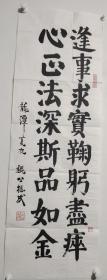 逢事求實鞠躬盡瘁
心正法深斯品如金
龍潭